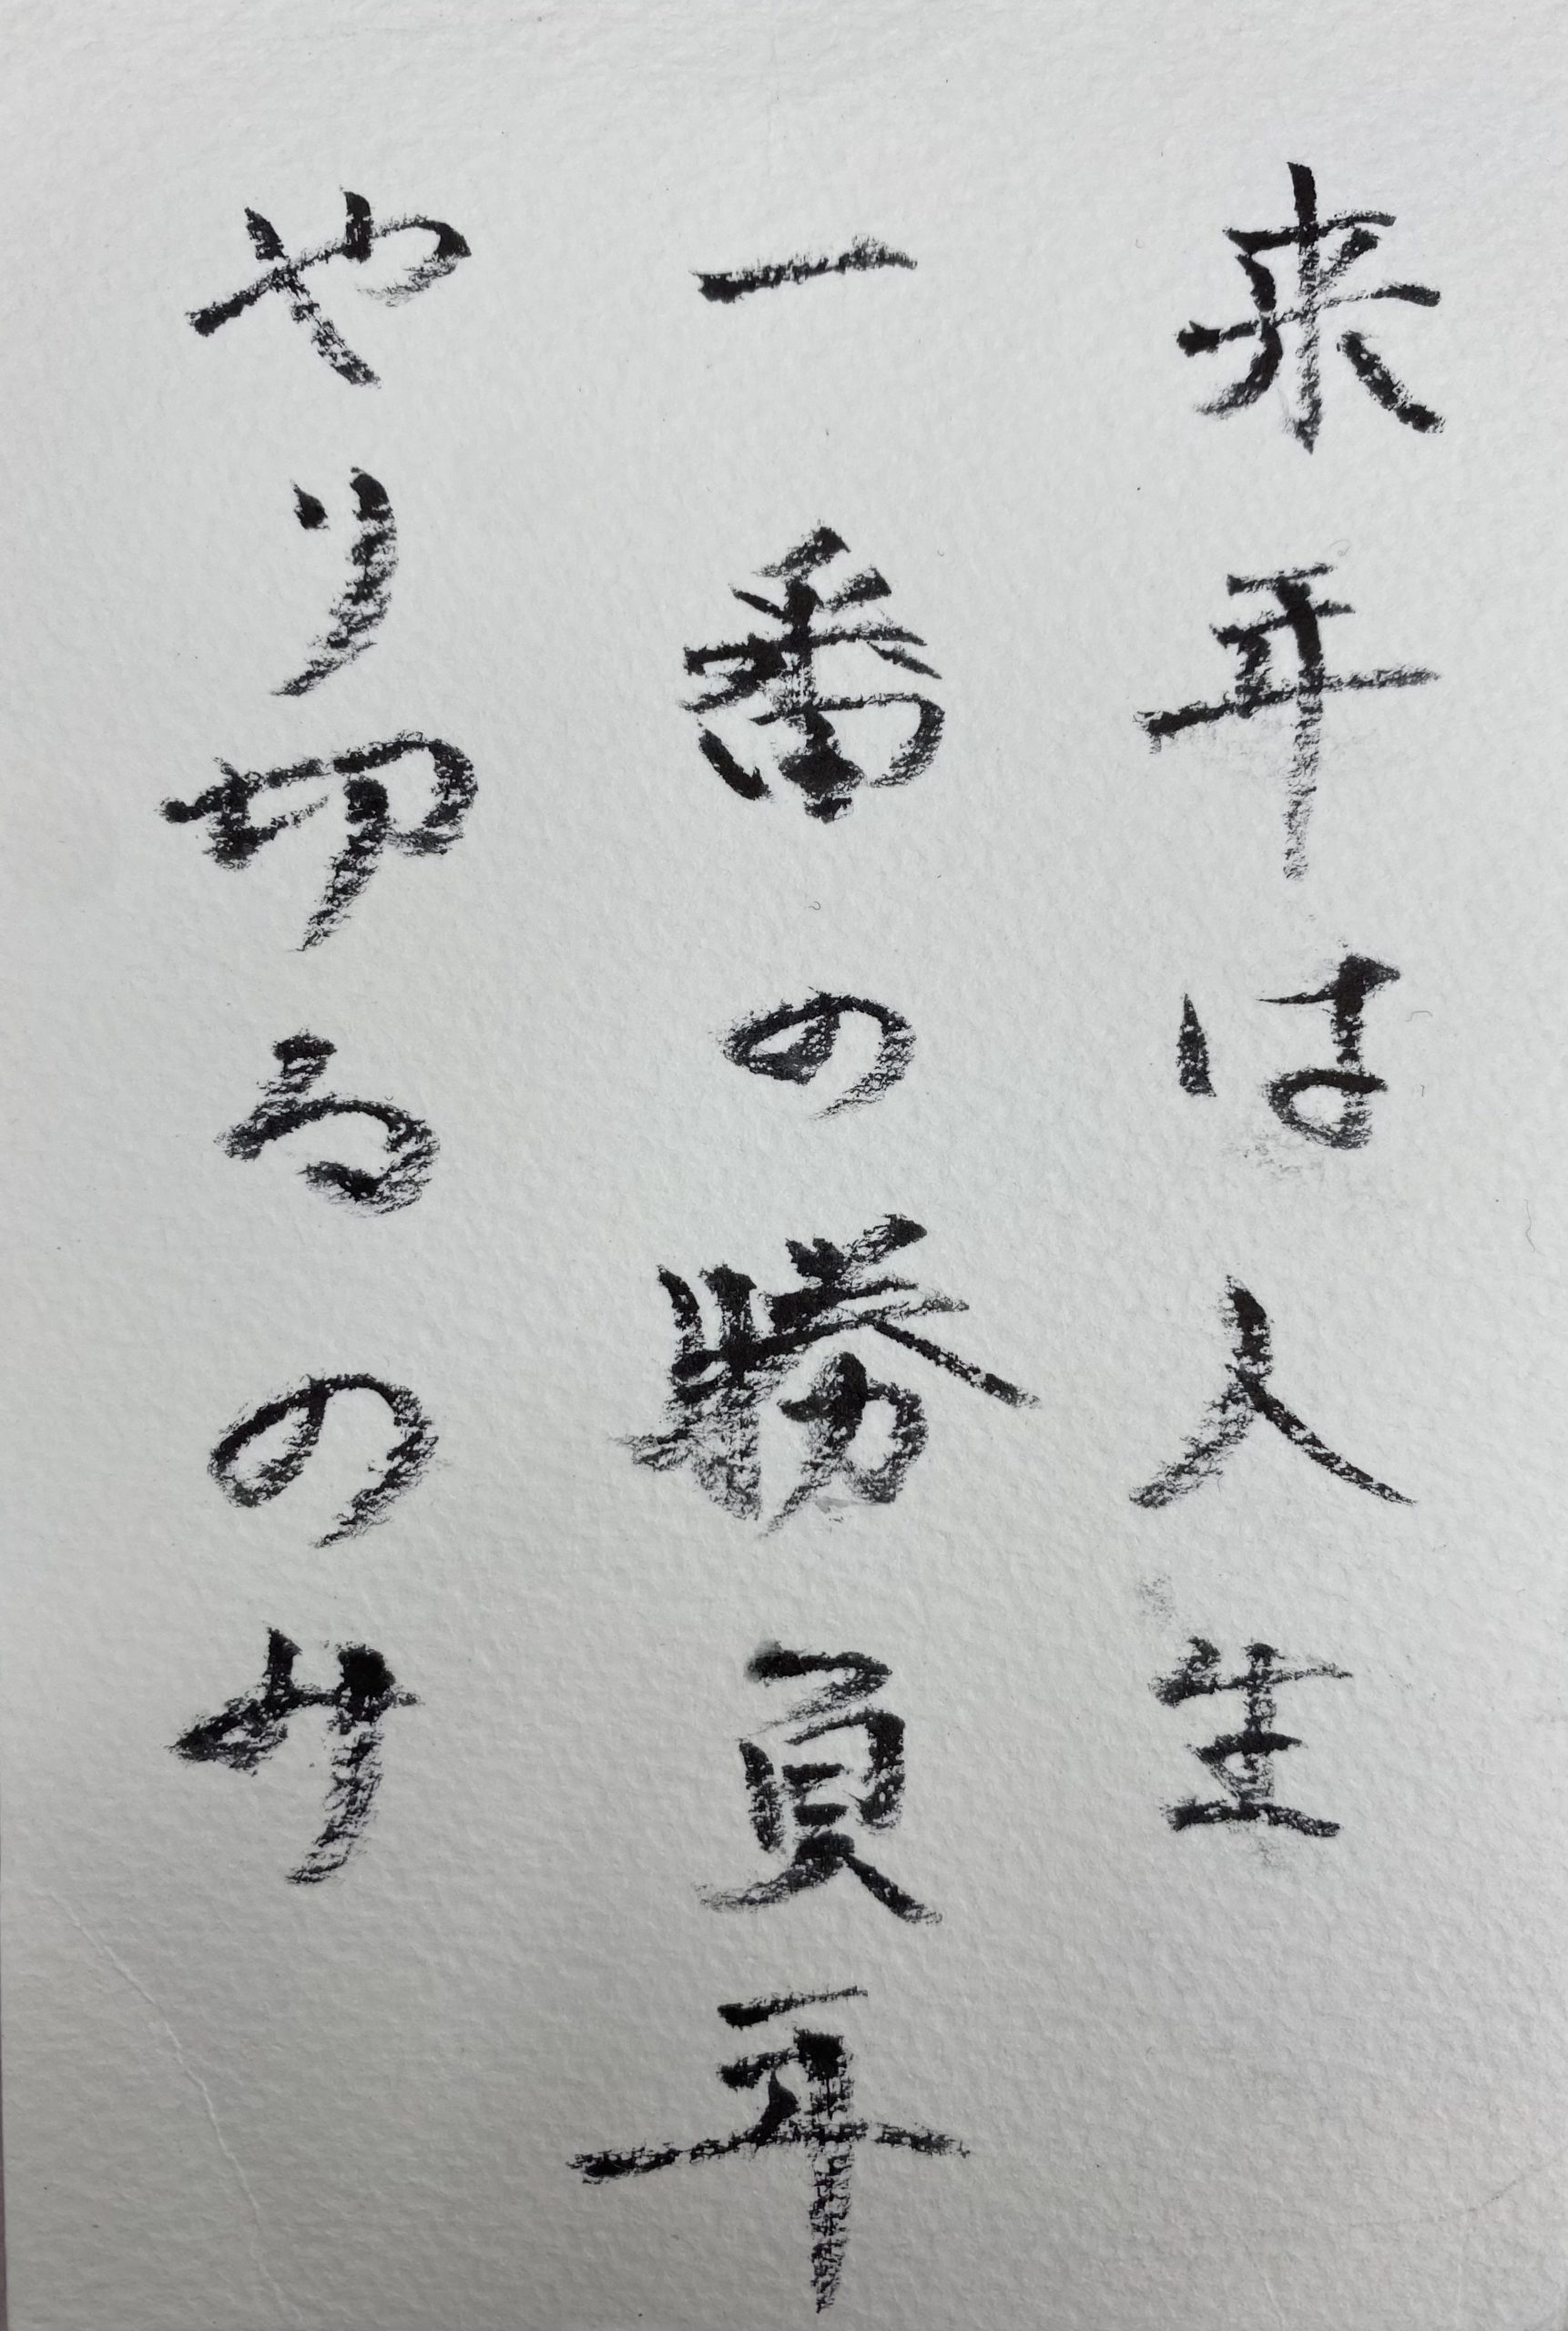 来年は人生
一番の勝負年
やり切るのサ